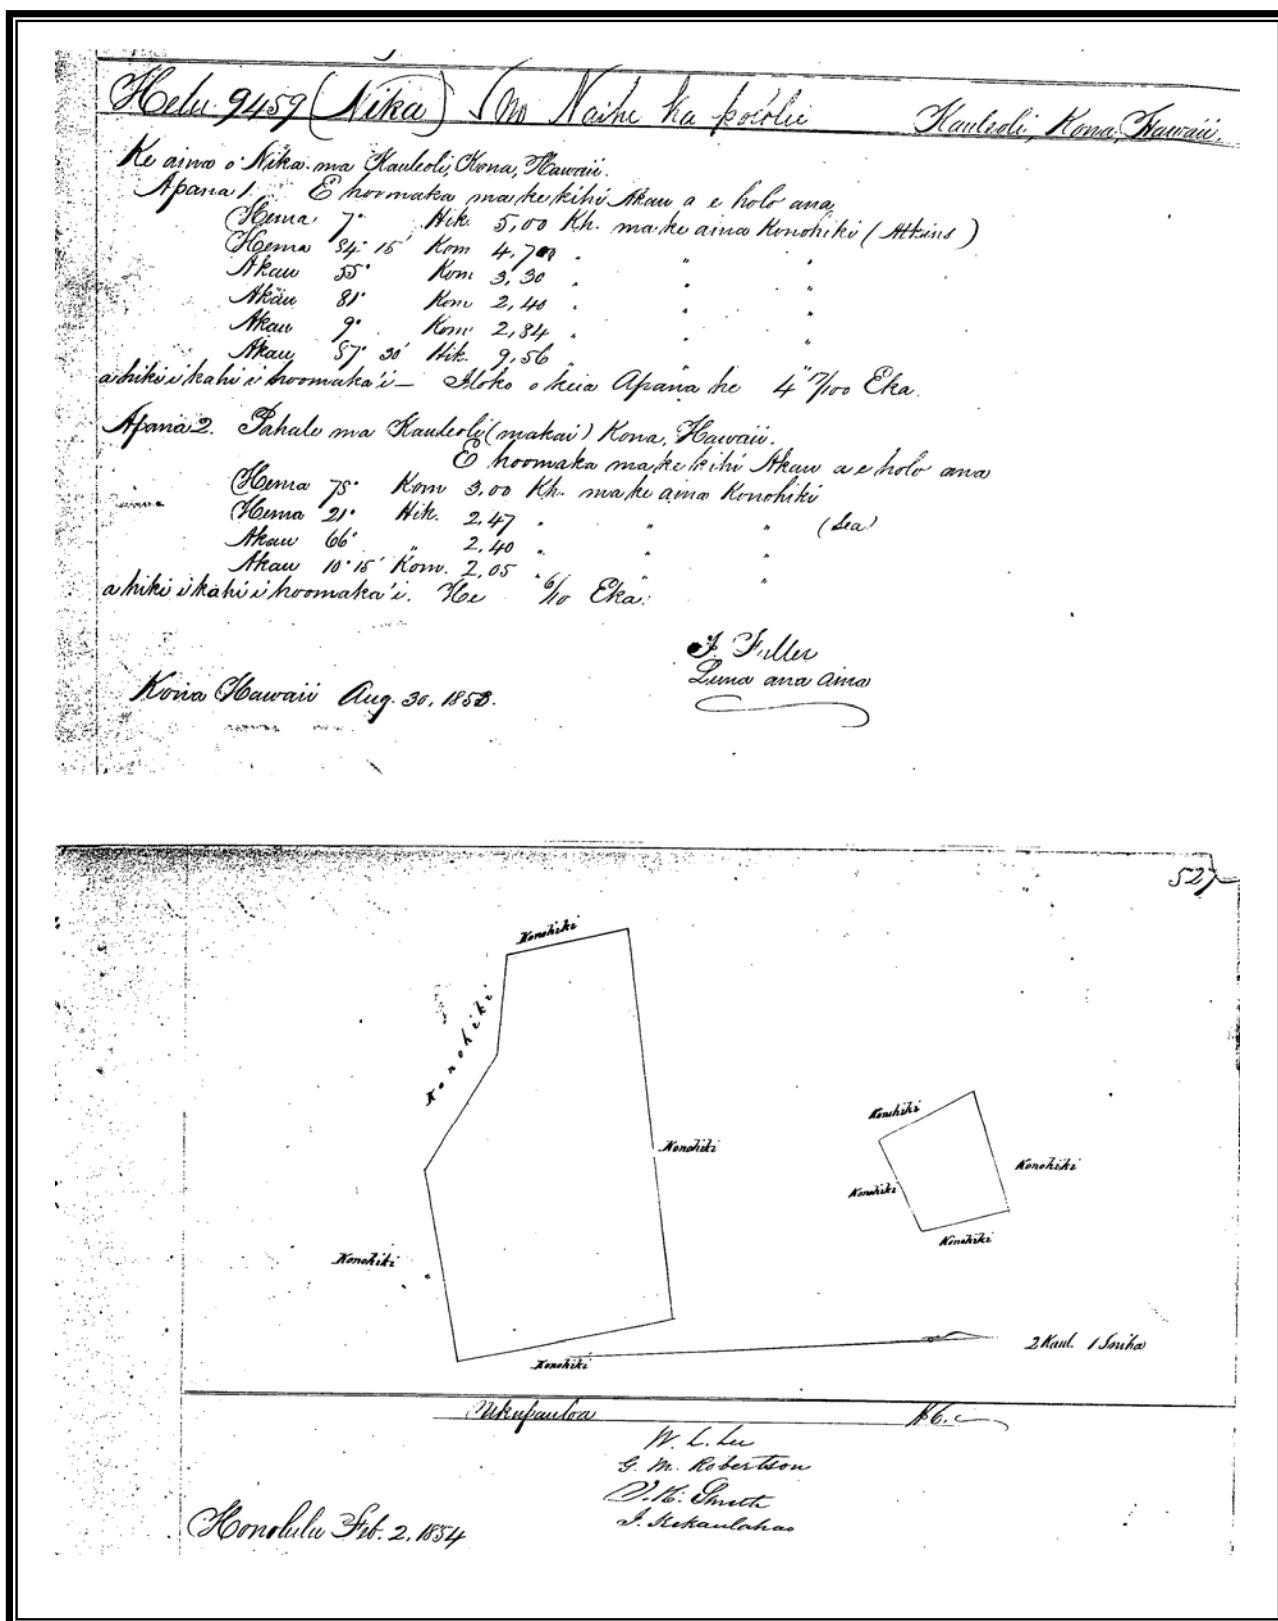 Helu 9459 (Nika) no Naihe ka pololu Kauleoli, Kona, Hawaii.
Ke aina o Nika ma Kauleoli, Kona, Hawaii.
Apana 1. E hoomaka ma ke kihi Akau a e holo ana,
Hema 7° Hik. 5,00 Kh. ma ke aina Konohiki (Atkins)
Hema 84° 15' Kom 4,700 " "
Akau 55° Kom 3,30 " "
Akau 81° Kom 2,40 " "
Akau 9° Kom 2,84 " "
Akau 57° 30' Hik. 9,56 " "
a hiki i kahi i hoomaka'i — Iloko o keia Apana he 4 17/100 Eka.
Apana 2. Pahale ma Kauleoli (makai) Kona, Hawaii.
E hoomaka ma ke kihi Akau a e holo ana
Hema 75° Kom 3,00 Kh. ma ke aina Konohiki
Hema 21° Hik. 2,47 " " (Sea)
Akau 66° " 2,40 " "
Akau 10° 15' Kom. 2,05 " "
a hiki i kahi i hoomaka'i. He 6/10 Eka.
J. Fuller
Luna ana Aina
Kona Hawaii Aug. 30, 1853.
527
Konohiki
Konohiki
Konohiki
Konohiki
Konohiki
Konohiki
Konohiki
Konohiki
Konohiki
2 Kaul. 1 Iniha
Ukupauloa $6.
W. L. Lee
G. M. Robertson
J. H. Smith
J. Kekaulahao
Honolulu Feb. 2, 1854